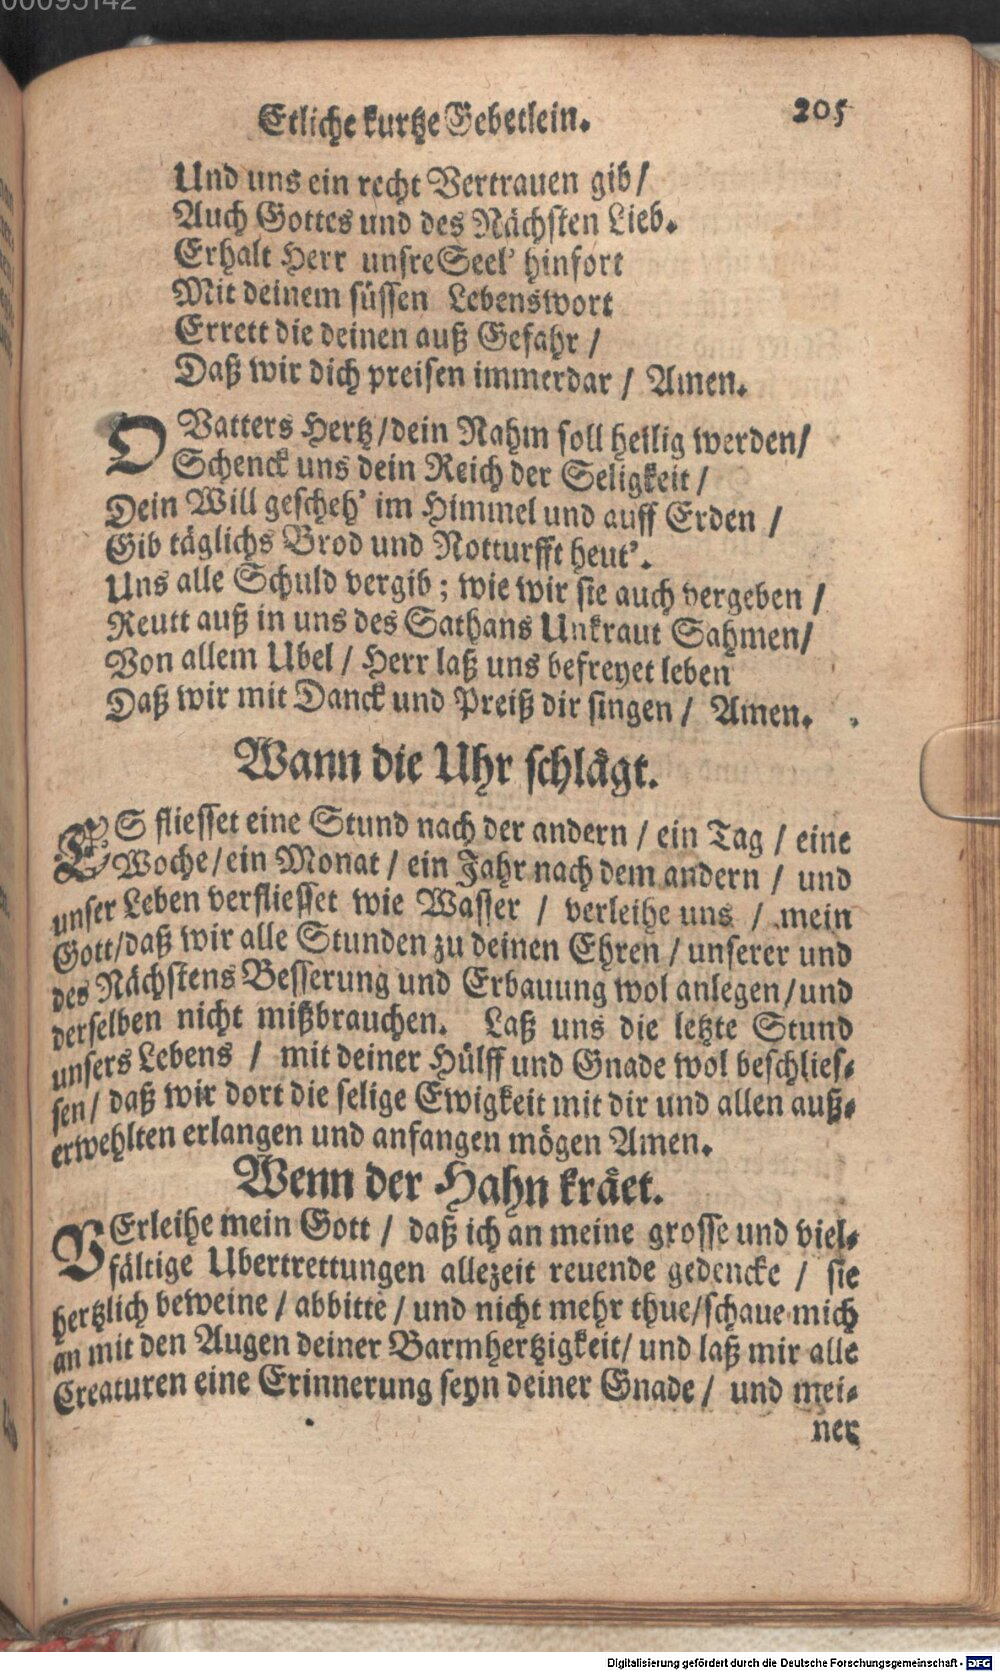 00095142
Etliche kurtze Gebetlein. 205
Und uns ein recht Vertrauen gib /
Auch Gottes und des Nächsten Lieb.
Erhalt Herr unsre Seel' hinfort
Mit deinem süssen Lebenswort
Errett die deinen auß Gefahr /
Daß wir dich preisen immerdar / Amen.
O Vatters Hertz / dein Nahm soll heilig werden /
Schenck uns dein Reich der Seligkeit /
Dein Will gescheh' im Himmel und auff Erden /
Gib täglichs Brod und Notturfft heut'.
Uns alle Schuld vergib ; wie wir sie auch vergeben /
Reutt auß in uns des Sathans Unkraut Sahmen /
Von allem Ubel / Herr laß uns befreyet leben
Daß wir mit Danck und Preiß dir singen / Amen.
Wann die Uhr schlägt.
ES fliesset eine Stund nach der andern / ein Tag / eine
Woche / ein Monat / ein Jahr nach dem andern / und
unser Leben verfliesset wie Wasser / verleihe uns / mein
Gott / daß wir alle Stunden zu deinen Ehren / unserer und
des Nächstens Besserung und Erbauung wol anlegen / und
derselben nicht mißbrauchen. Laß uns die letzte Stund
unsers Lebens / mit deiner Hülff und Gnade wol beschlies-
sen / daß wir dort die selige Ewigkeit mit dir und allen auß-
erwehlten erlangen und anfangen mögen Amen.
Wenn der Hahn kräet.
VErleihe mein Gott / daß ich an meine grosse und viel-
fältige Ubertrettungen allezeit reuende gedencke / sie
hertzlich beweine / abbitte / und nicht mehr thue / schaue mich
an mit den Augen deiner Barmhertzigkeit / und laß mir alle
Creaturen eine Erinnerung seyn deiner Gnade / und mei-
ner
Digitalisierung gefördert durch die Deutsche Forschungsgemeinschaft - DFG